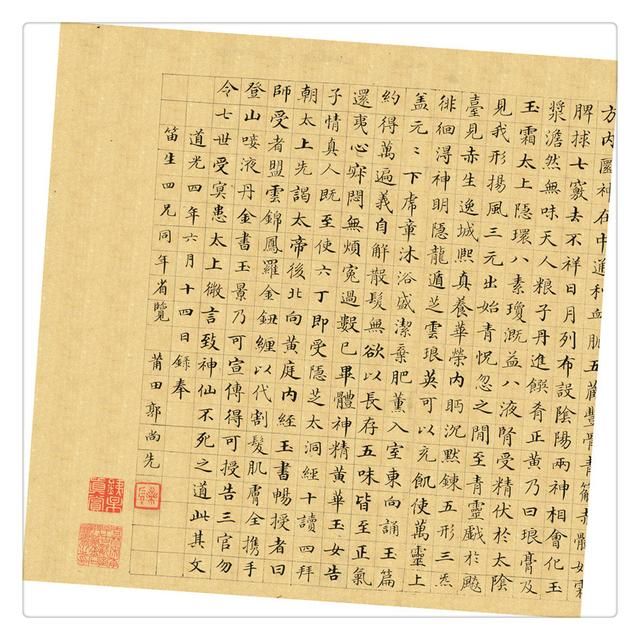 方內圓神在中通利血脈五藏豐骨青筋赤髓如霜
脾捄七竅去不祥日月列布設陰陽兩神相會化玉
漿澹然無味天人粮子丹進饌肴正黃乃曰琅膏及
玉霜太上隱環八素瓊溉益八液腎受精伏於太陰
見我形揚風三元出始青怳忽之閒至青靈戲於颷
臺見赤生逸域熙真養華榮內眄沉默鍊五形三炁
徘徊淂神明隱龍遁芝雲琅英可以充飢使萬靈上
盖元〻下席章沐浴盛潔棄肥薰入室東向誦玉篇
約得萬遍義自解散髮無欲以長存五味皆至正氣
還夷心寂悶無煩寃過數已畢體神精黃華玉女告
子情真人既至使六丁即受隱芝太洞經十讀四拜
朝太上先謁太帝後北向黃庭內經玉書暢授者曰
師受者盟雲錦鳳羅金鈕纏以代割髮肌膚全攜手
登山㗖液丹金書玉景乃可宣傳得可授告三官勿
令七世受冥患太上微言致神仙不死之道此其文
道光四年六月十四日錄奉
笛生四兄同年省覽 莆田郭尚先